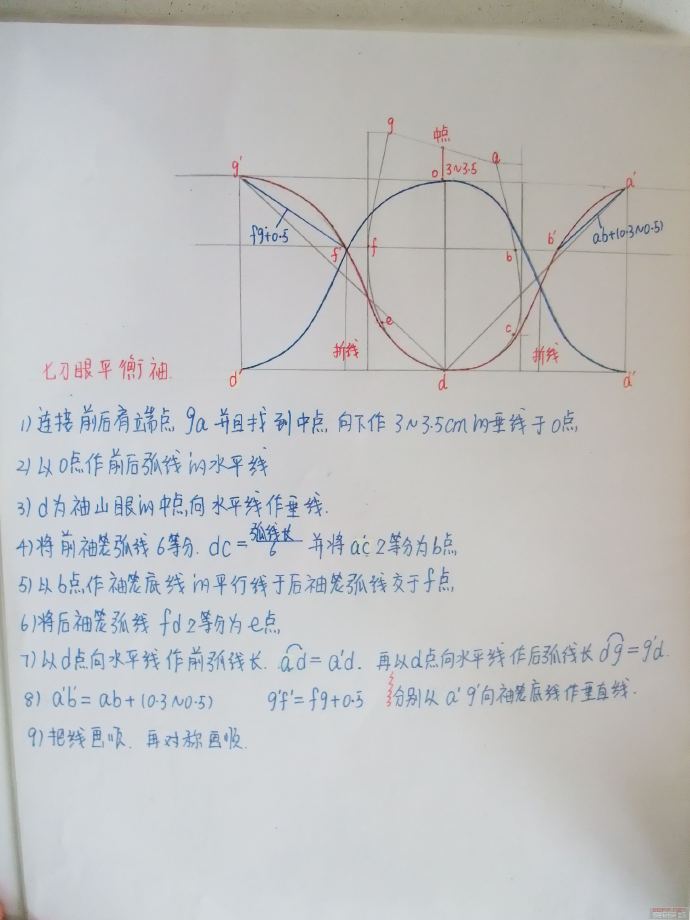 g 中点 a
g' o 3~3.5 a'
fg+0.5 f' f b b' ab+(0.3~0.5)
e c
折线 折线
d' d d'
七刀眼平衡袖.
1) 连接前后肩端点 ga 并且找到中点, 向下作 3~3.5cm 的垂线于 o点,
2) 以 o点作前后弧线的水平线
3) d为袖山眼的中点,向水平线作垂线.
4) 将前袖笼弧线6等分. dc=弧线长/6 并将 ac 2等分为b点,
5) 以b点,作袖笼底线的平行线于后袖笼弧线交于f点,
6) 将后袖笼弧线 fd 2等分为 e点,
7) 以d点向水平线作前弧线长. ad=a'd. 再以d点向水平线作后弧线长 dg=g'd.
8) a'b'=ab+(0.3~0.5) g'f'=fg+0.5 分别以 a' g'向袖笼底线作垂直线.
9) 把线画顺. 再对称画顺.